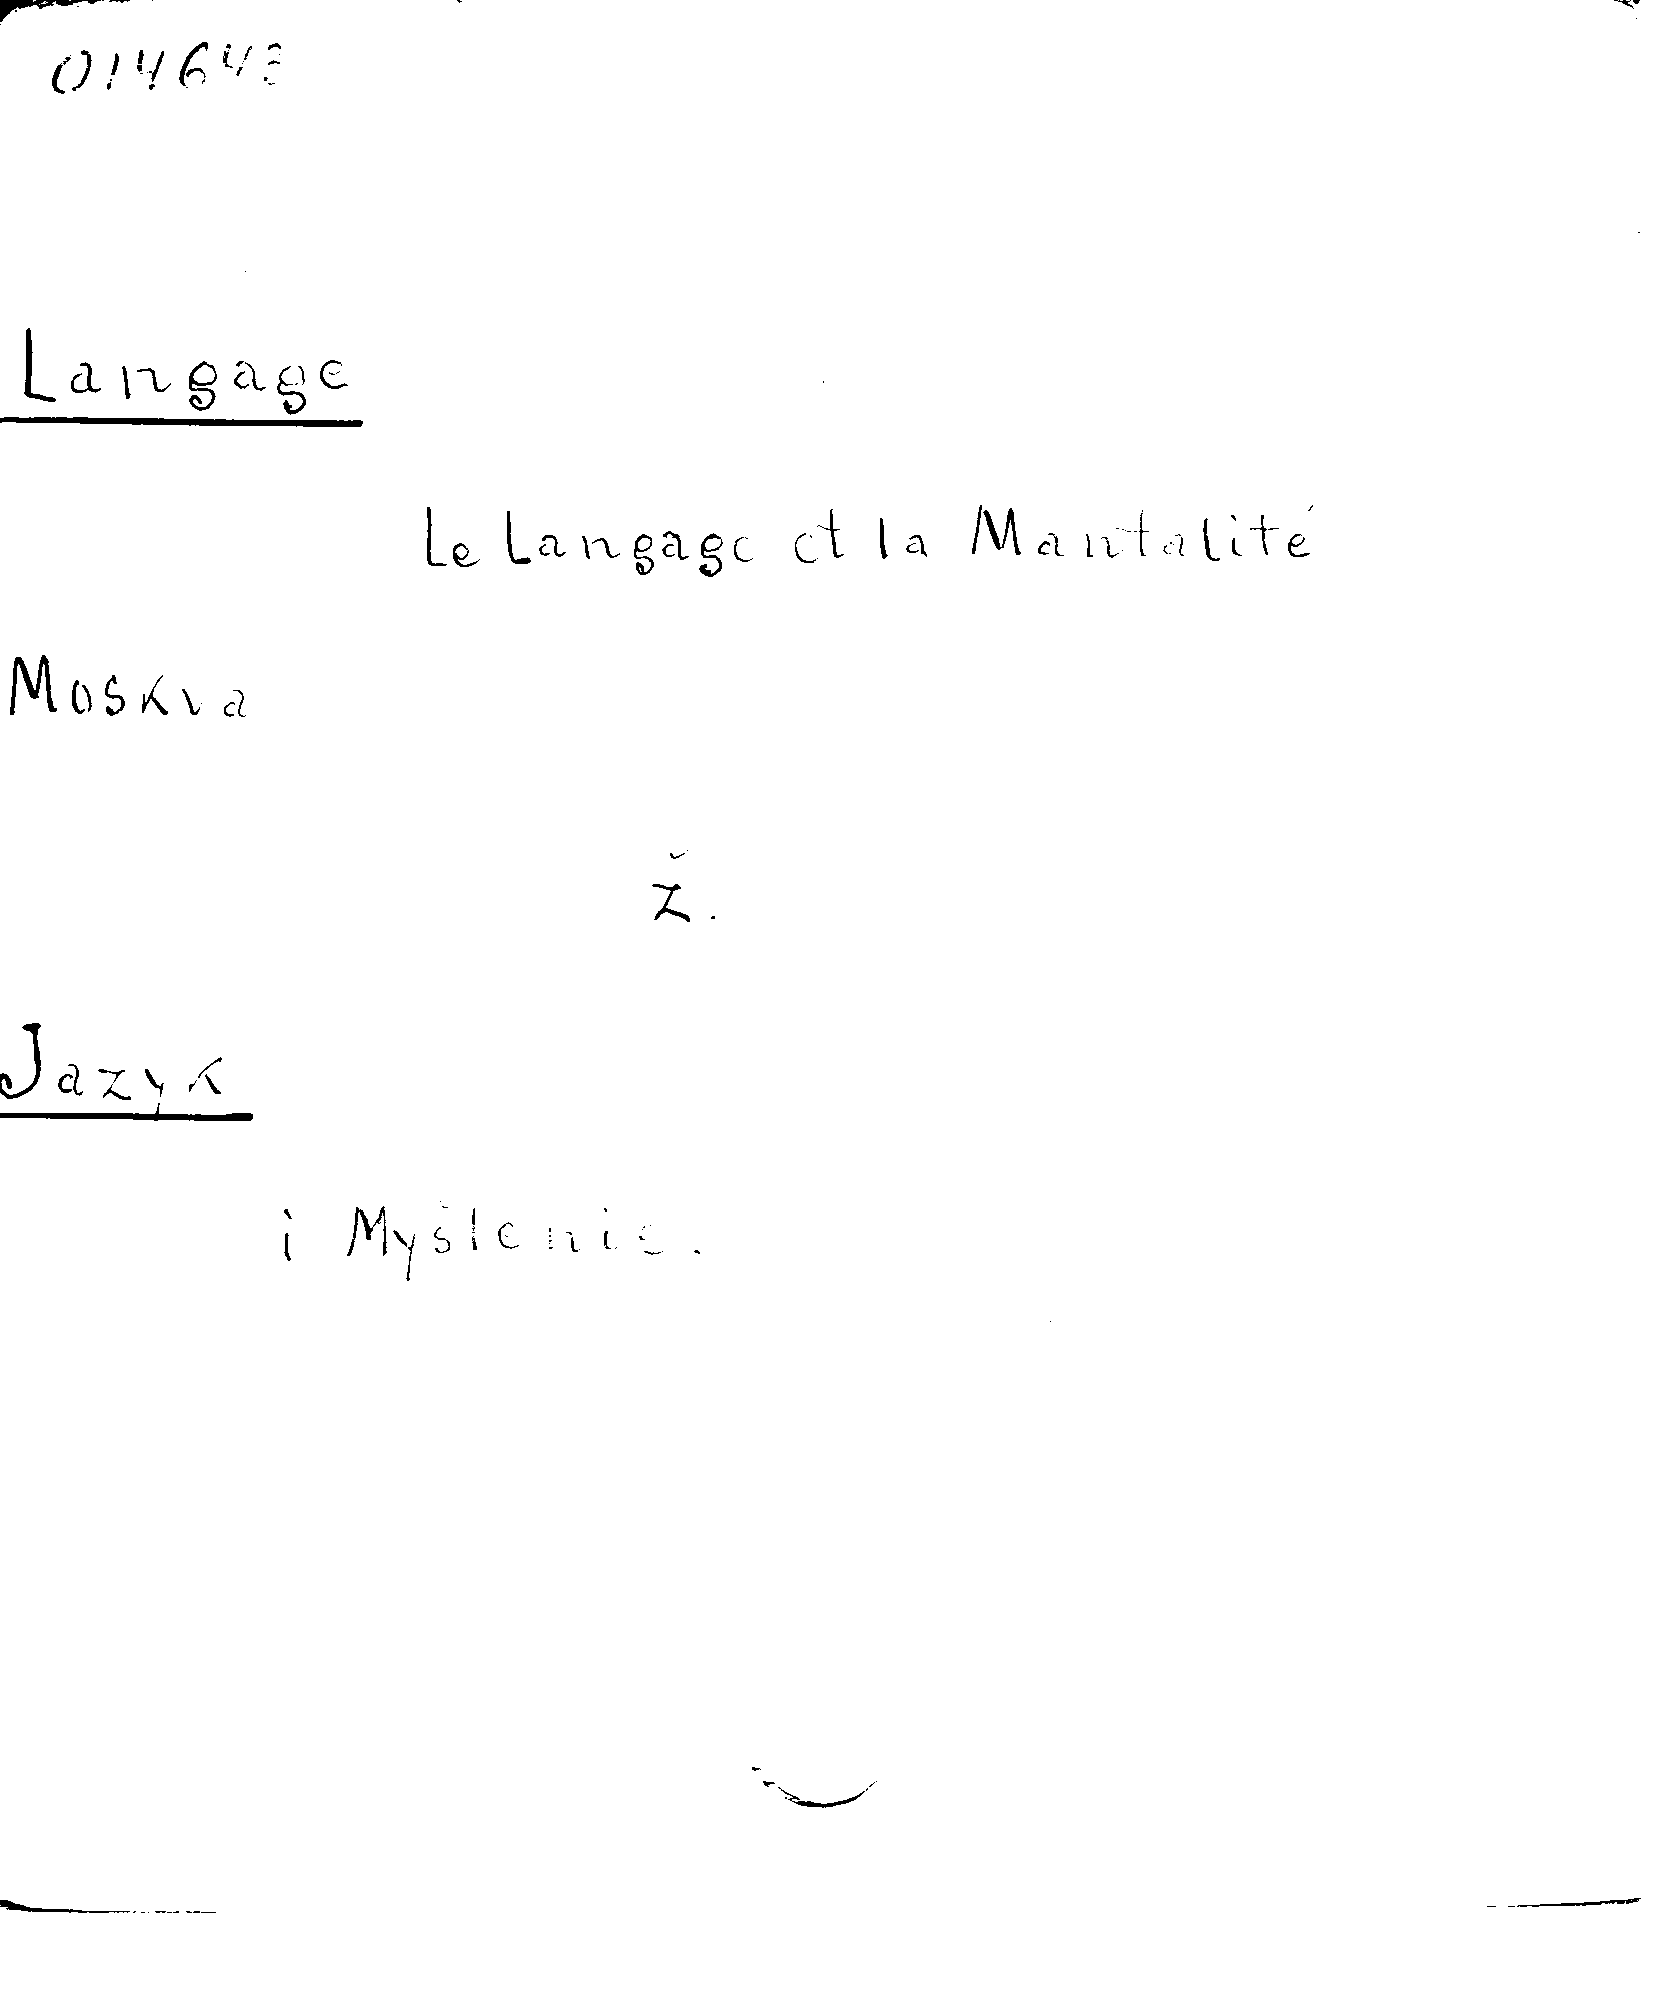 014643
Langage
Le Langage et la Mantalité
Moskva
Ž.
Jazyk
i Myšlenie.